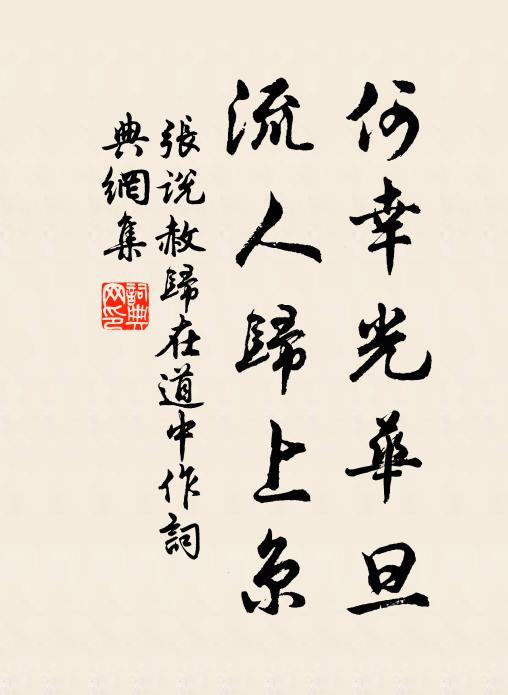 何幸光華旦
流人歸上京
張說赦歸在道中作詞
典網集
詞典
网印